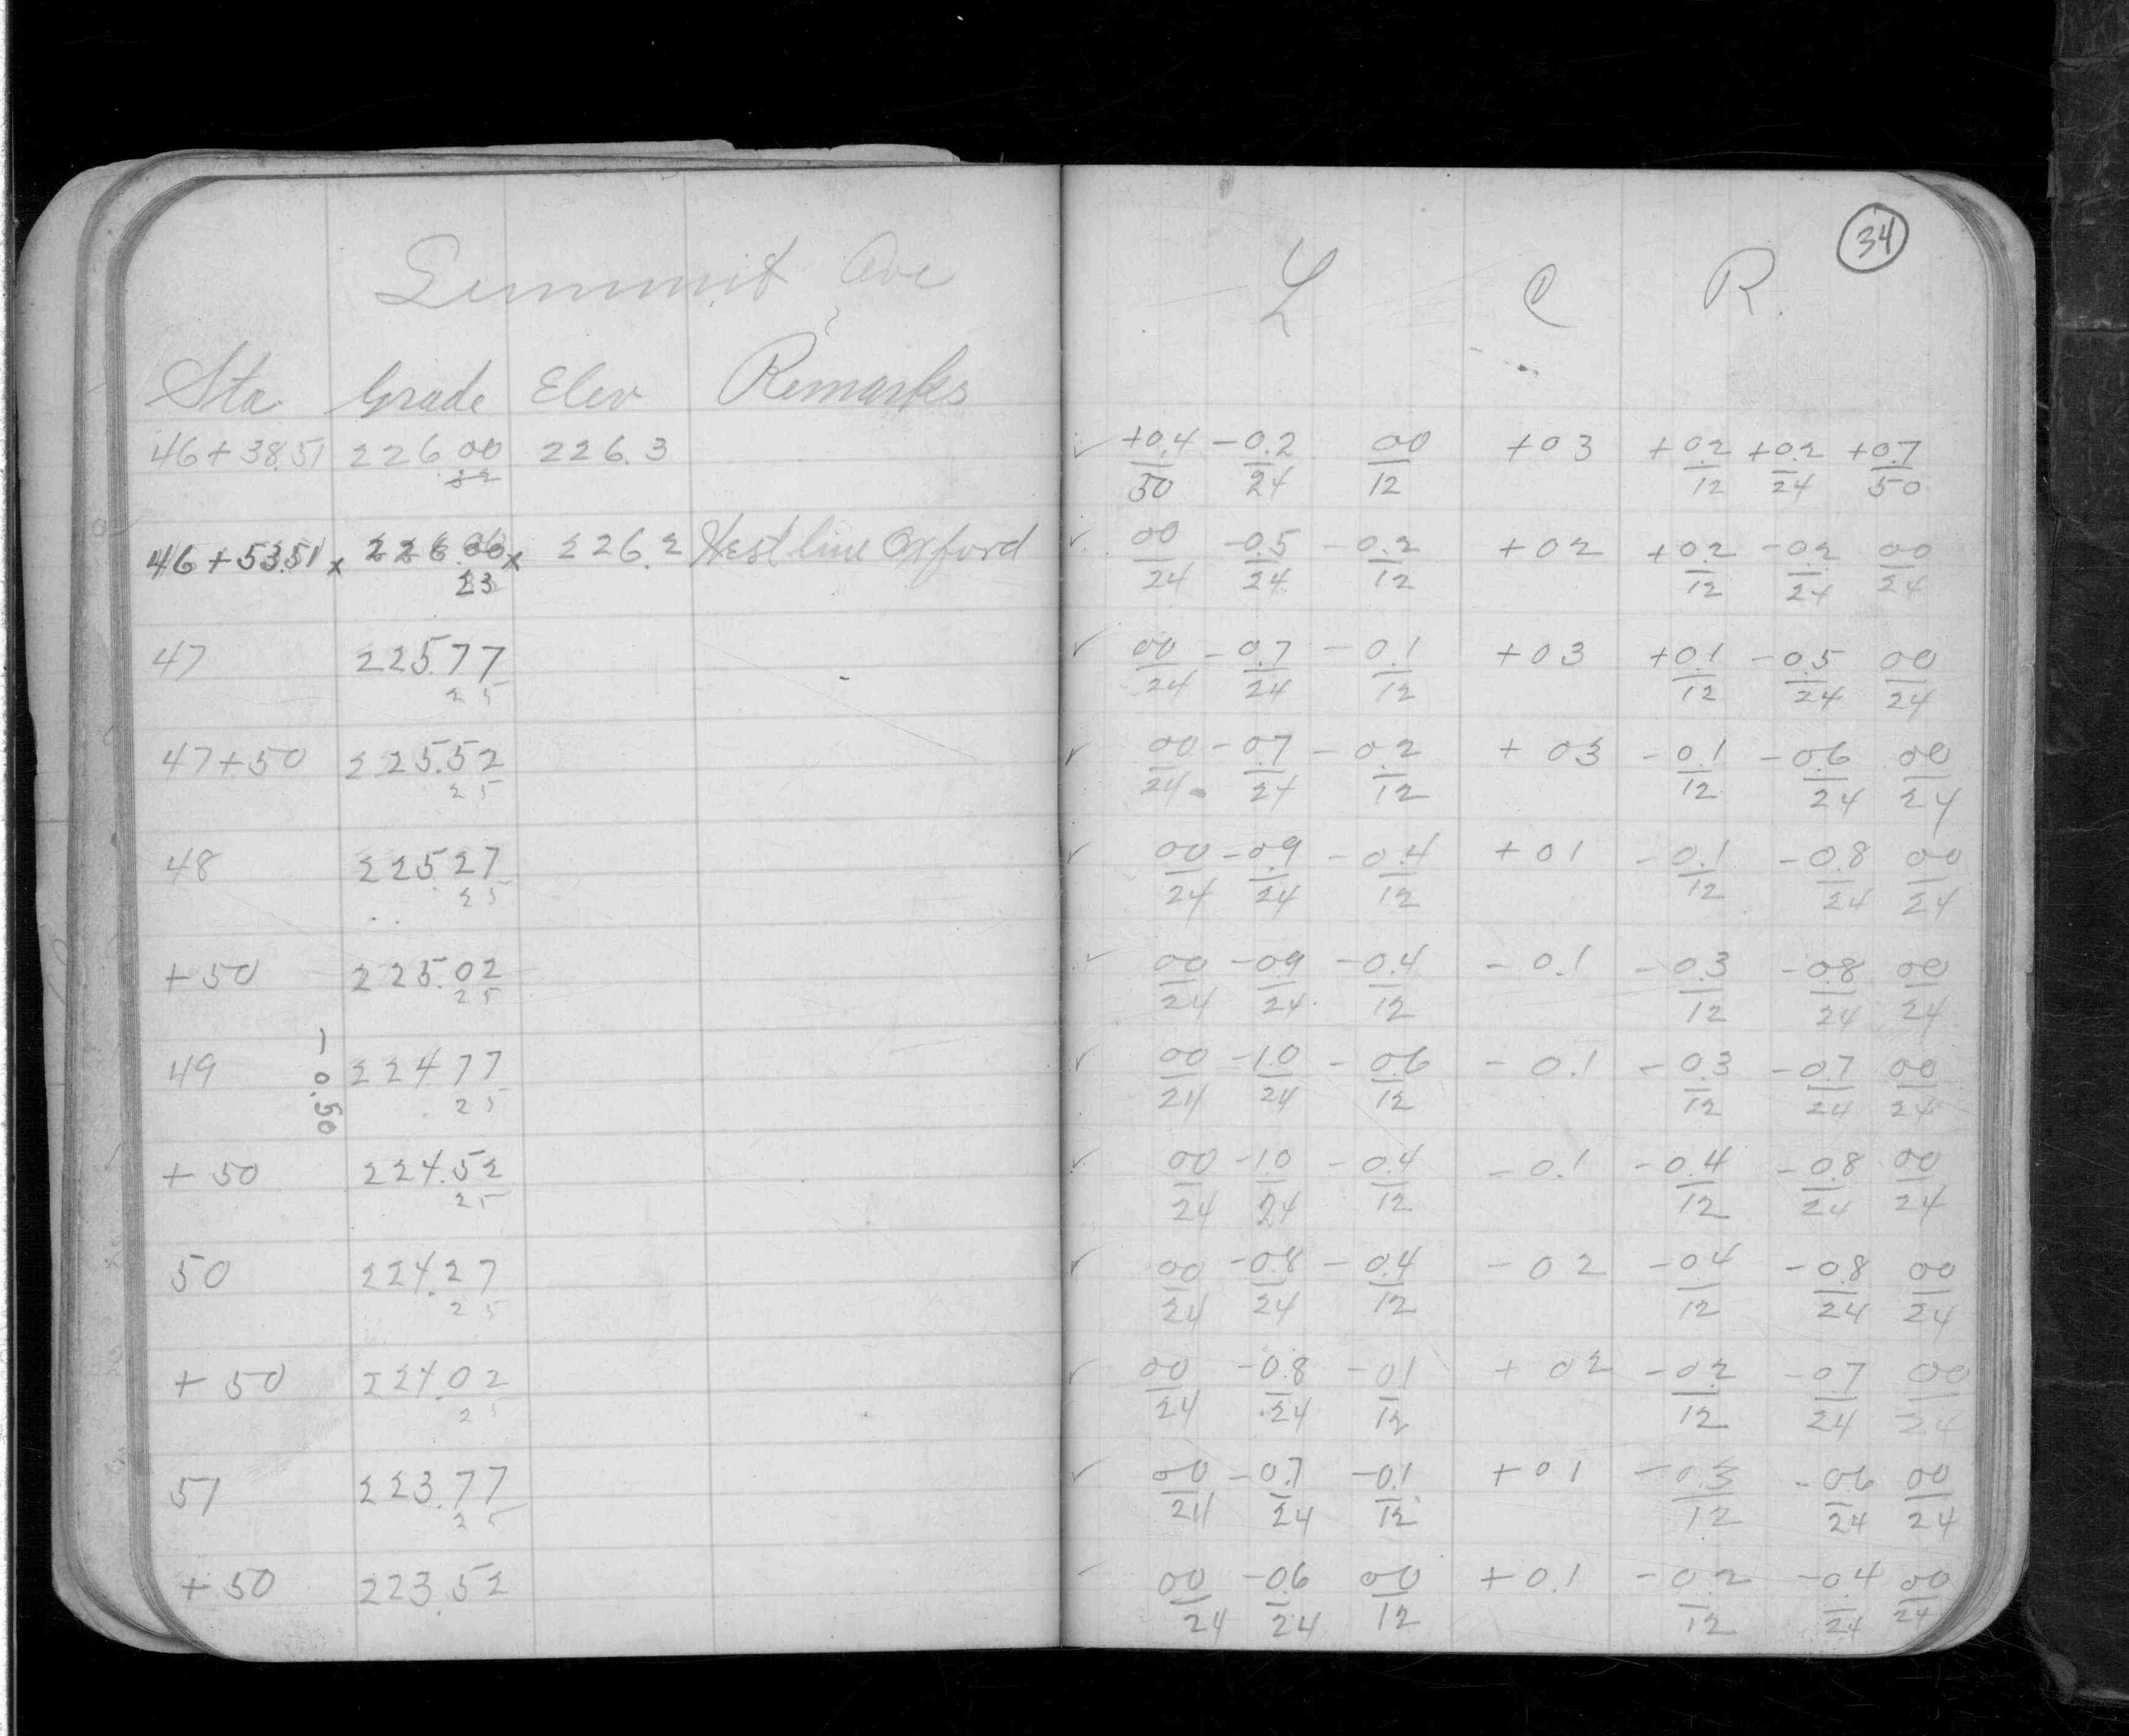 Summit Ave
Sta Grade Elev Remarks
46+38.51 226.00 226.3
32
46+53.51 x 226.00 x 226.2 West line Oxford
23
47 225.77
25
47+50 225.52
25
48 225.27
25
+50 225.02
25
49 224.77
25
-0.50
+50 224.52
25
50 224.27
25
+50 224.02
25
51 223.77
25
+50 223.52
34
L C R.
✓ +0.4/50 -0.2/24 00/12 +03 +0.2/12 +0.2/24 +0.7/50
✓ 00/24 -0.5/24 -0.2/12 +02 +0.2/12 -0.2/24 00/24
✓ 00/24 -0.7/24 -0.1/12 +03 +0.1/12 -0.5/24 00/24
✓ 00/24 -0.7/24 -0.2/12 +03 -0.1/12 -0.6/24 00/24
✓ 00/24 -0.9/24 -0.4/12 +01 -0.1/12 -0.8/24 00/24
✓ 00/24 -09/24 -0.4/12 -0.1 -0.3/12 -0.8/24 00/24
✓ 00/24 -1.0/24 -0.6/12 -0.1 -0.3/12 -0.7/24 00/24
✓ 00/24 -10/24 -0.4/12 -0.1 -0.4/12 -0.8/24 00/24
✓ 00/24 -0.8/24 -0.4/12 -02 -04/12 -0.8/24 00/24
✓ 00/24 -0.8/24 -01/12 +02 -0.2/12 -0.7/24 00/24
✓ 00/24 -0.7/24 -0.1/12 +01 -0.3/12 -06/24 00/24
00/24 -06/24 00/12 +0.1 -0.2/12 -04/24 00/24